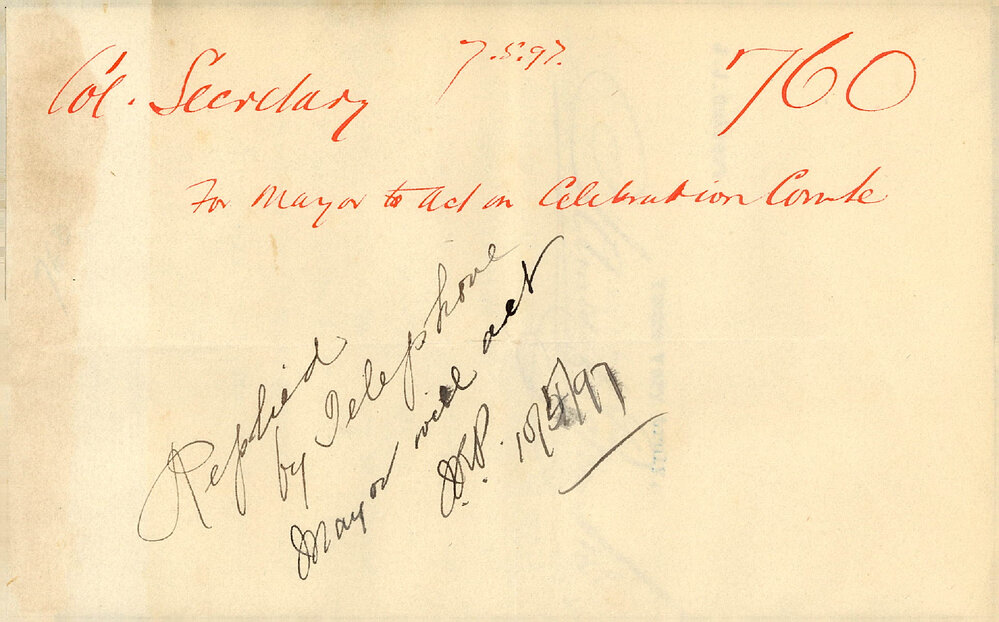 Col. Secretary 7.5.97. 760
For Mayor to Act on Celebration Comte
Replied
by Telephone
Mayor will act
10/5/97